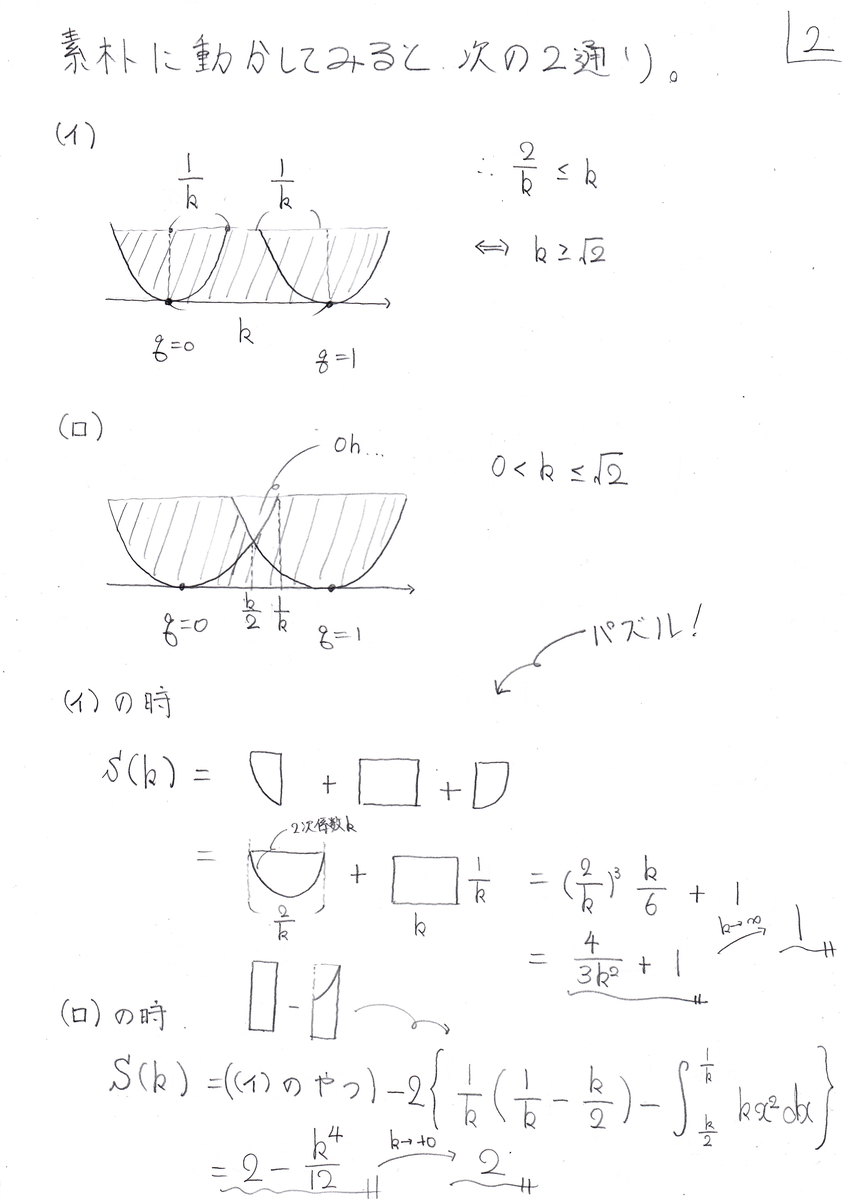 素朴に動かしてみると、次の2通り。
2
(イ)
1/k 1/k
∴ 2/k ≤ k
⇔ k ≥ √2
q=0 k q=1
(ロ)
Oh...
0 < k ≤ √2
k/2 1/k
q=0 q=1
パズル!
(イ)の時
S(k) = + +
2次係数k
= 2/k + k 1/k = (2/k)³ k/6 + 1
= 4/3k² + 1 k→∞ 1
(ロ)の時 -
S(k) = ((イ)のやつ) - 2{ 1/k (1/k - k/2) - ∫_{k/2}^{1/k} kx²dx }
= 2 - k⁴/12 k→+0 2